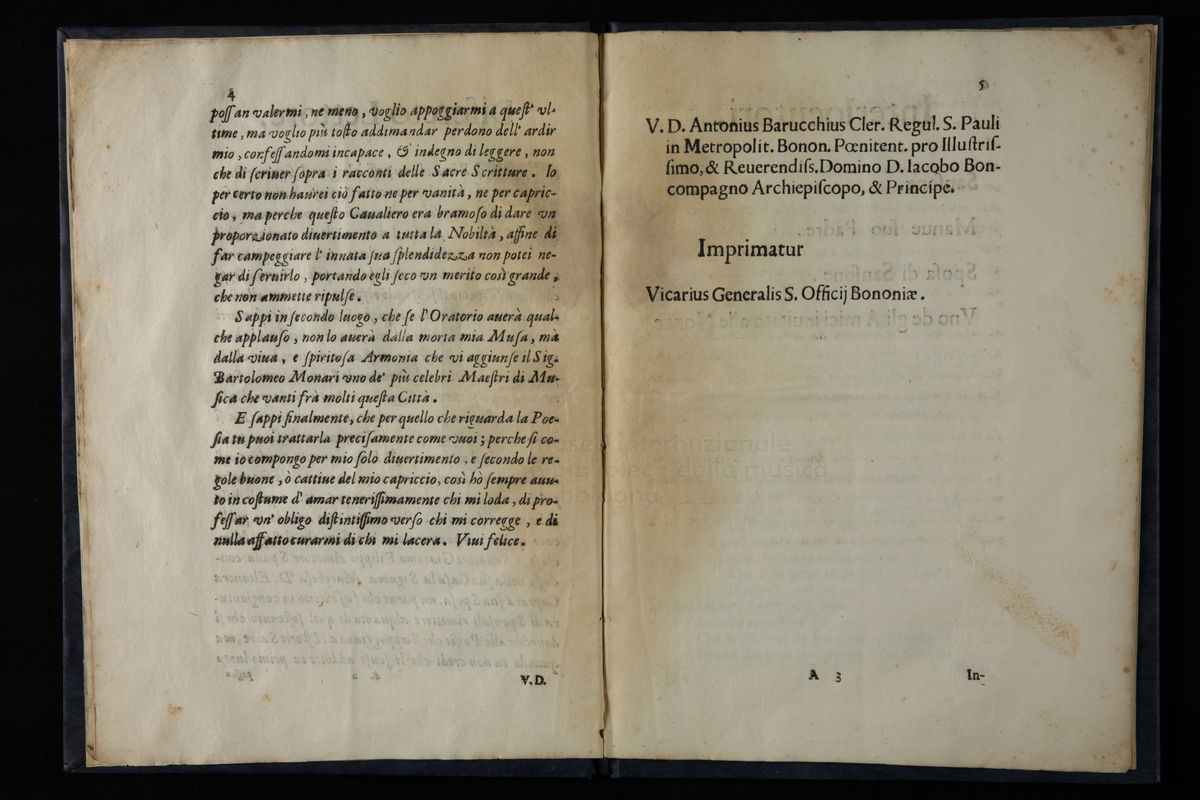 4
poſſan valermi, ne meno, voglio appoggiarmi a queſt' vl-
time, ma voglio più toſto addimandar perdono dell' ardir
mio, confeſſandomi incapace, & indegno di leggere, non
che di ſcriuer ſopra i racconti delle Sacre Scritture. Io
per certo non haurei ciò fatto ne per vanità, ne per capric-
cio, ma perche queſto Caualiero era bramoſo di dare vn
proporzionato diuertimento a tutta la Nobiltà, affine di
far campeggiare l' innata ſua ſplendidezza non potei ne-
gar di ſeruirlo, portando egli ſeco vn merito così grande,
che non ammette ripulſe.
Sappi in ſecondo luogo, che ſe l'Oratorio auerà qual-
che applauſo, non lo auerà dalla morta mia Muſa, mà
dalla viua, e ſpiritoſa Armonia che vi aggiunſe il Sig.
Bartolomeo Monari vno de' più celebri Maeſtri di Mu-
ſica che vanti frà molti queſta Città.
E ſappi finalmente, che per quello che riguarda la Poe-
ſia tù puoi trattarla preciſamente come vuoi; perche ſi co-
me io compongo per mio ſolo diuertimento, e ſecondo le re-
gole buone, ò cattiue del mio capriccio, così hò ſempre auu-
to in coſtume d' amar teneriſſimamente chi mi loda, di pro-
feſſar vn' obligo diſtintiſſimo verſo chi mi corregge, e di
nulla affatto curarmi di chi mi lacera. Viui felice.
V.D.
5
V. D. Antonius Barucchius Cler. Regul. S. Pauli
in Metropolit. Bonon. Pœnitent. pro Illuſtriſ-
ſimo, & Reuerendiſs. Domino D. Iacobo Bon-
compagno Archiepiſcopo, & Principe.
Imprimatur
Vicarius Generalis S. Officij Bononiæ.
A 3
In-
museo internazionale
e biblioteca della musica
bologna